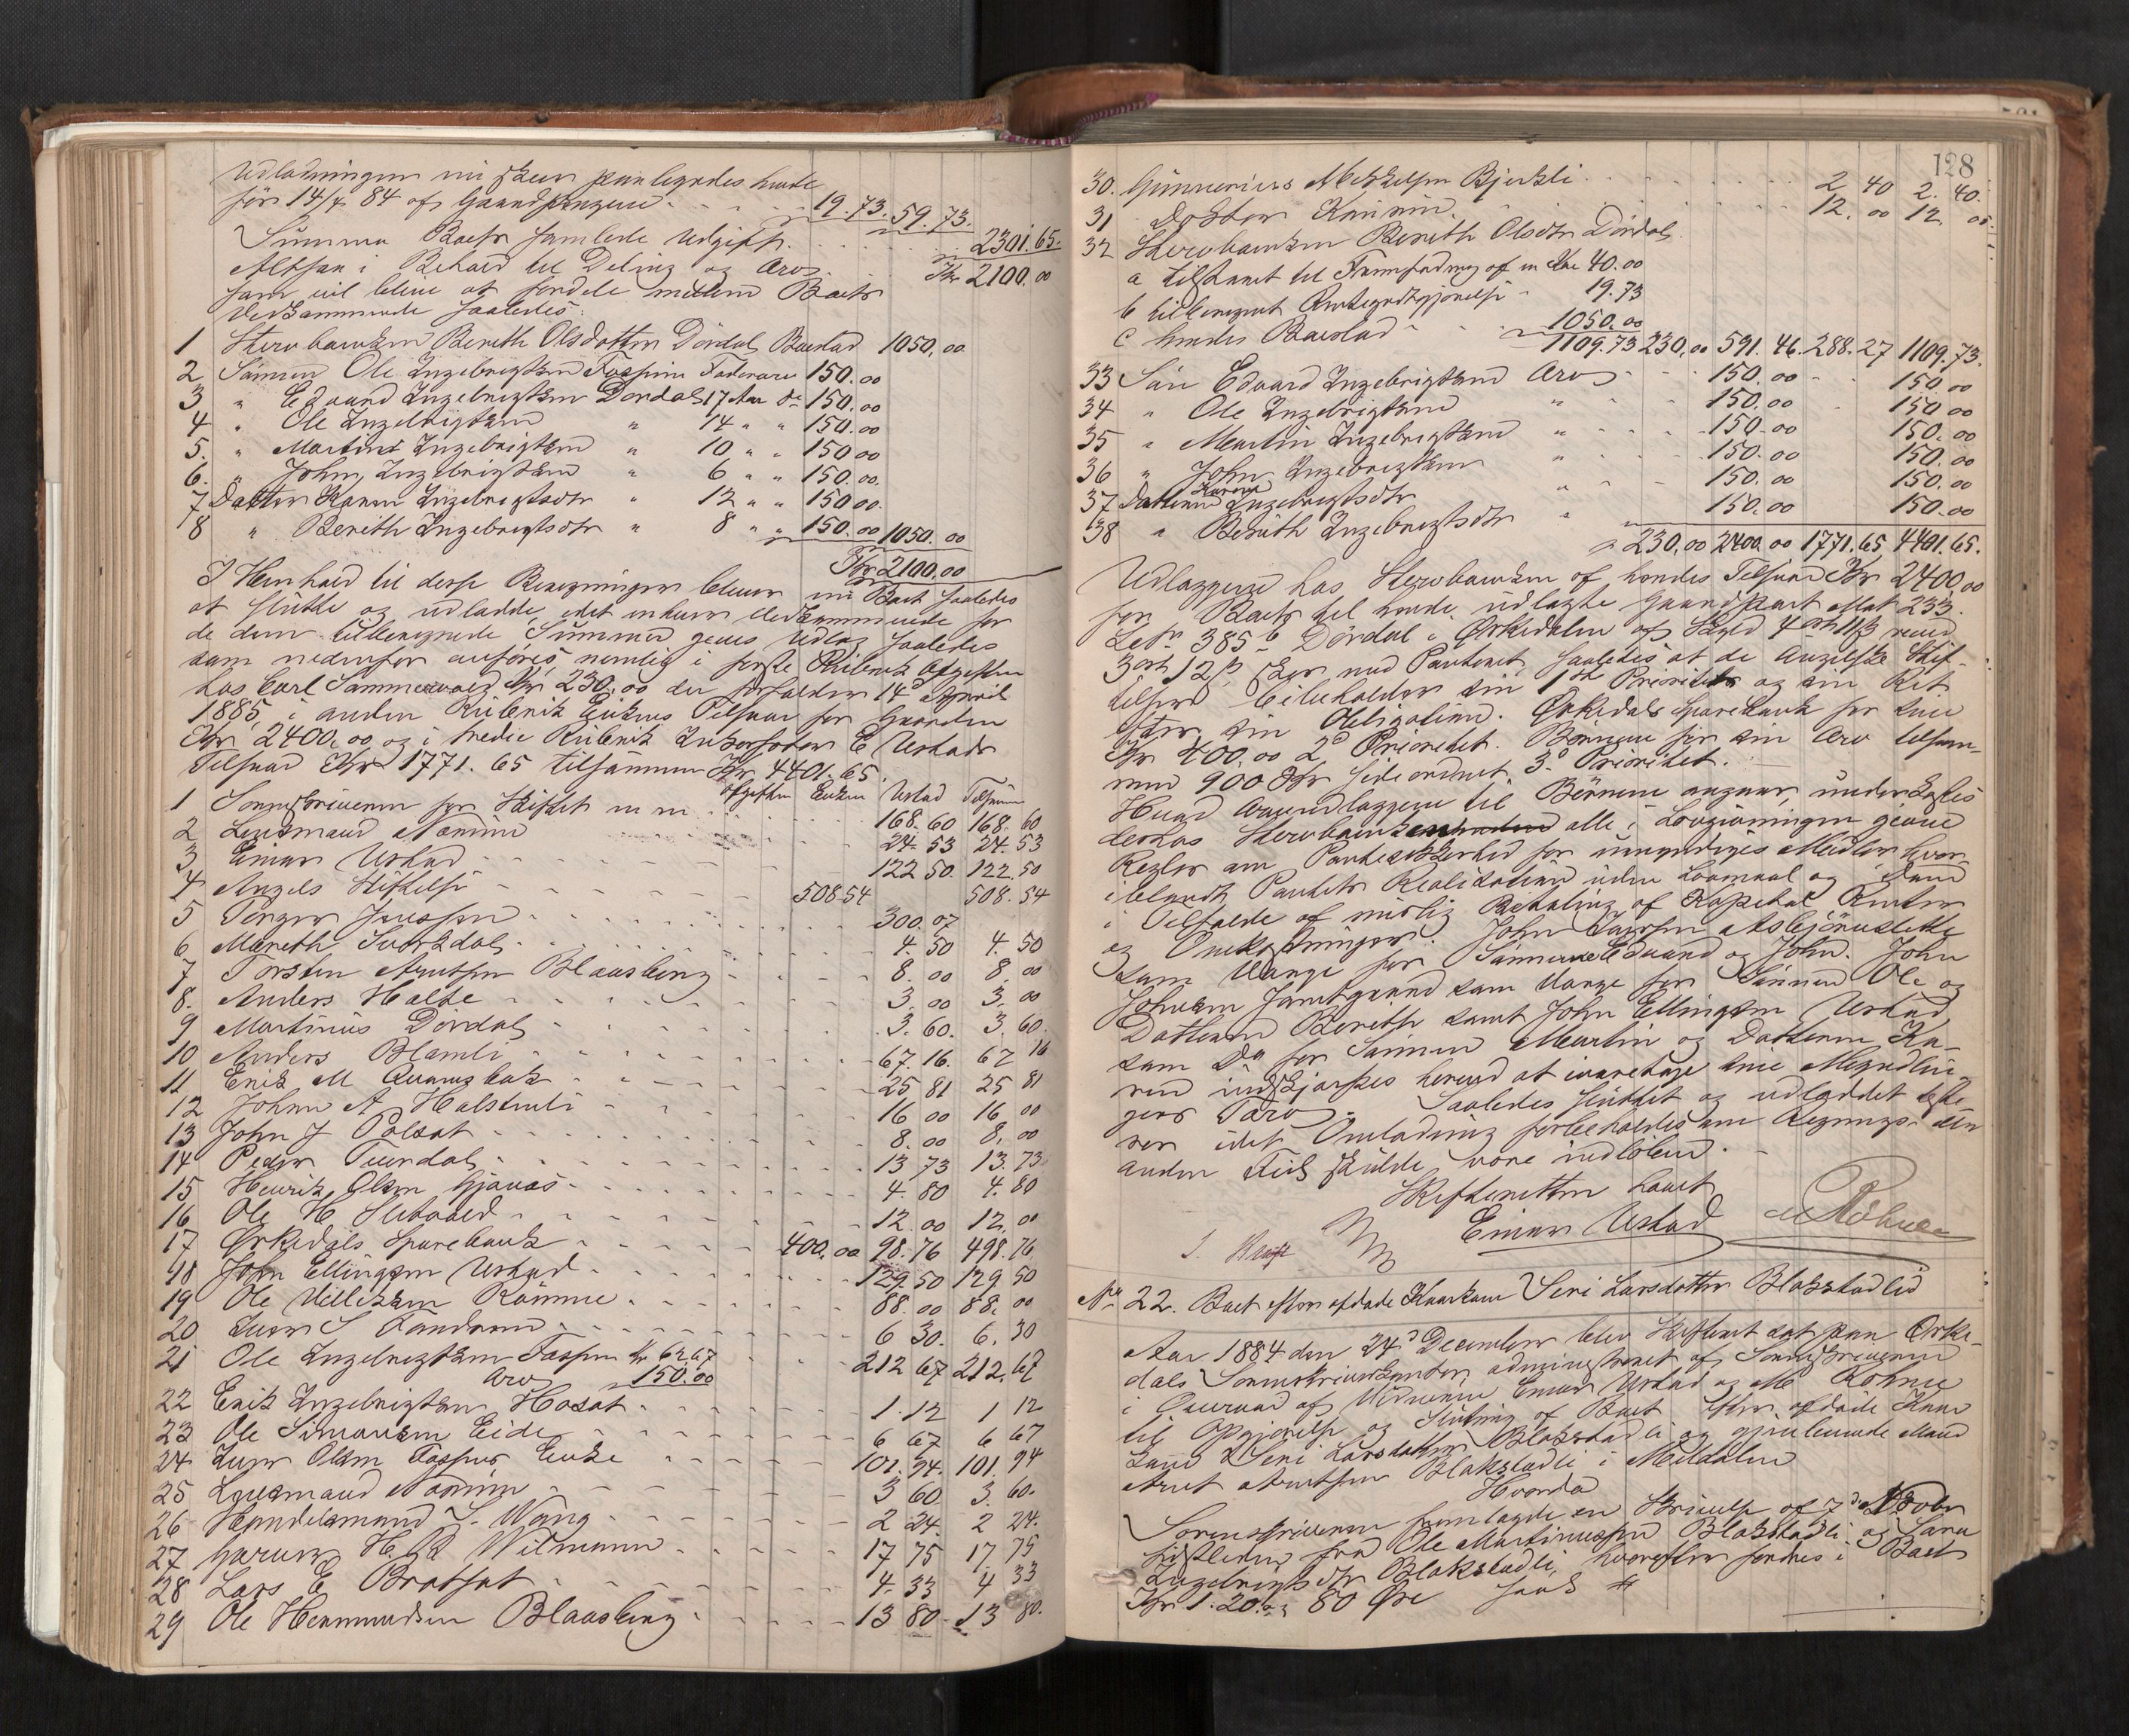 Udladningen nu skeer paalignedes hende
før 14/4 84 af Gaardpengene 19.73. 59.73.
Summa Boets samlede Udgift 2301.65.
Altsaa i Behold til Deling og Arv Kr 2100.00
som vil blive at fordele mellem Boets
Vedkommende saaledes:
1 Stervboenken Bereth Olsdatter Dördal Boeslod 1050,00
2 Sönnen Ole Ingebrigtsen Fossum Faderarv 150.00
3 " Edvard Ingebrigtsen Dördal 17 Aar do 150.00
4 " Ole Ingebrigtsen " 14 " " 150.00
5. " Martin Ingebrigtsen " 10 " " 150 00
6. " John Ingebrigtsen " 6 " " 150.00.
7 Datter Karen Ingebrigtsdtr " 12 " " 150 00.
8 " Bereth Ingebrigtsdtr " 8 " " 150.00 1050.00
Kr 2100,00
I Henhold til disse Beregninger bliver nu Boet saaledes
at slutte og udlodde, idet enhver Vedkommende for
de dem tilberegnede Summer gives Udlæg saaledes
som nedenfor anföres nemlig i förste Rubrik Afgiften
hos Carl Sommervold Kr 230,00 der forfalder 14d April
1885, i anden Rubrik Enkens Tilsvar for Gaarden
Kr 2400,00 og i tredie Rubrik Inkassator E Ustads
Tilsvar Kr 1771.65 tilsammen Kr 4401.65.
Afgiften Enken Ustad Tilsammen
1 Sorenskriveren for Skiftet m m 168.60 168.60
2 Lensmand 24.53 24.53
3 Einar Ustad 122 50. 122.50
4 Angels Stiftelse 508.54 508.54
5 300.07
6 Mereth Svorkdal 4.50 4.50
7 Torsten Arntsen Blaasberg 8.00 8.00
8. Anders Holte 3.00 3.00
9 Martinus Dördal 3.60. 3.60
10 Anders Blamli 67.16. 67 16
11 Erik M 25 81 25 81
12 Johan A 16 00 16 00
13 John J 8.00 8,00
14 Peder 13 73 13.73
15 Henrik Olsen Gjønnes 4.80 4.80
16 Ole H 12.00 12.00
17 Ørkedals Sparebank 400,00 98.76 498.76
18 John Ellingsen Ustad 129.50 129 50
19 Ole Villiksen Römme 88.00 88.00
20 S 6 30. 6.30
21 Ole Ingebrigtsen Fossum Kr 62.67
Arv 150.00 212 67 212.67
22 Erik Ingebrigtsen 1.12 1 12
23 Ole Simonsen Eide 6 67 6 67
24 Olsen Fossens Enke 101.94. 101.94
25 Lensmand 3 60. 3.60.
26 Handelsmand S. Wang 2 24. 2 24.
27 Garver H. R Widmann 17 75 17 75
28 Lars E 4.33 4 33
29 Ole Hermundsen Blaasberg 13 80 13 80.
128
30. Gunnerius Mikkelsen Bjerkli 2 40 2.40.
31 Doktor 12.00 12 00
32 Stervboenken Bereth Olsdtr Dördal
a tilstaaet til Fremfödning af en Ko 40.00
b tilberegnet 19.73
c hendes Boeslod 1050.00
1109.73 230,00 591.46. 288.27 1109.73.
33 Sön Edvard Ingebrigtsen Arv 150.00 150.00
34 " Ole Ingebrigtsen " 150.00 150 00
35 " Martin Ingebrigtsen " 150.00 150.00
36 " John Ingebrigtsen " 150.00 150.00
37 Datteren Karen Ingebrigtsdtr " 150.00 150.00
38 " Bereth Ingebrigtsdtr " 150.00 150.00
230,00 2400.00 1771.65 4401.65.
Udlæggene hos Stervboenken af hendes Tilsvar Kr 2400,00
for Boets til hende udlagte Gaardpart Mat 233.
Löbn 385 b Dördal i Ørkedalen af Skyld 4 ort 11 β revid
3 ort 12 β skeer mod Panteret saaledes at de Angelske Stif-
telser beholder sin 1ste Prioritet og sin Ret
efter sin Obligation. Ørkedals Sparebank for sine
Kr 400,00 2d Prioritet. Börnene for sin Arv tilsam-
men 900 Kr sideordnet 3d Prioritet.
Hvad Arveudlæggene til Börnene angaar, underkastes
derhos Stervboenken alle i Lovgivningen givne
Regler om Pantesikkerhed for umyndiges Midler hvor-
iblandt Pantets Realisation uden Lovmaal og Dom
i Tilfælde af mislig Betaling af Kapital Renter
og Omkostninger. John Asbjörnslette
som Værge for Sönnerne Edvard og John. John
Johnsen som Værge for Sönnen Ole og
Datteren Bereth samt John Ellingsen Ustad
som Do for Sönnen Martin og Datteren Ka-
ren indskjærpes herved at ivaretage sine Myndlin-
gers Tarv. Saaledes sluttet og udloddet bli-
ver idet Omlodning forbeholdes om Regnings- eller
anden Feil skulde være indlöben.
Skifteretten hævet
Einar Ustad M Rohne
No 22. Boet efter afdöde Kaarkone Seri Larsdatter Blokstadli
Aar 1884 den 24d December blev Skifteret sat paa Ørke-
dals Sorenskriverkontor administreret af Sorenskriveren
i Overvær af Vidnerne Einar Ustad og M Rohne
til Opgjörelse og Slutning af Boet efter afdöde Kaar-
kone Seri Larsdatter Blokstadli og gjenlevende Mand
Arnt Arntsen Blokstadli i Meldalen
Hvorda
Sorenskriveren fremlagde en Skrivelse af 7de Novbr
sidstleden fra Ole Martinussen Blokstadli og Sara
Ingebrigtsdtr Blokstadli, hvorefter fandtes i Boet
Kr 1.20 80 Øre